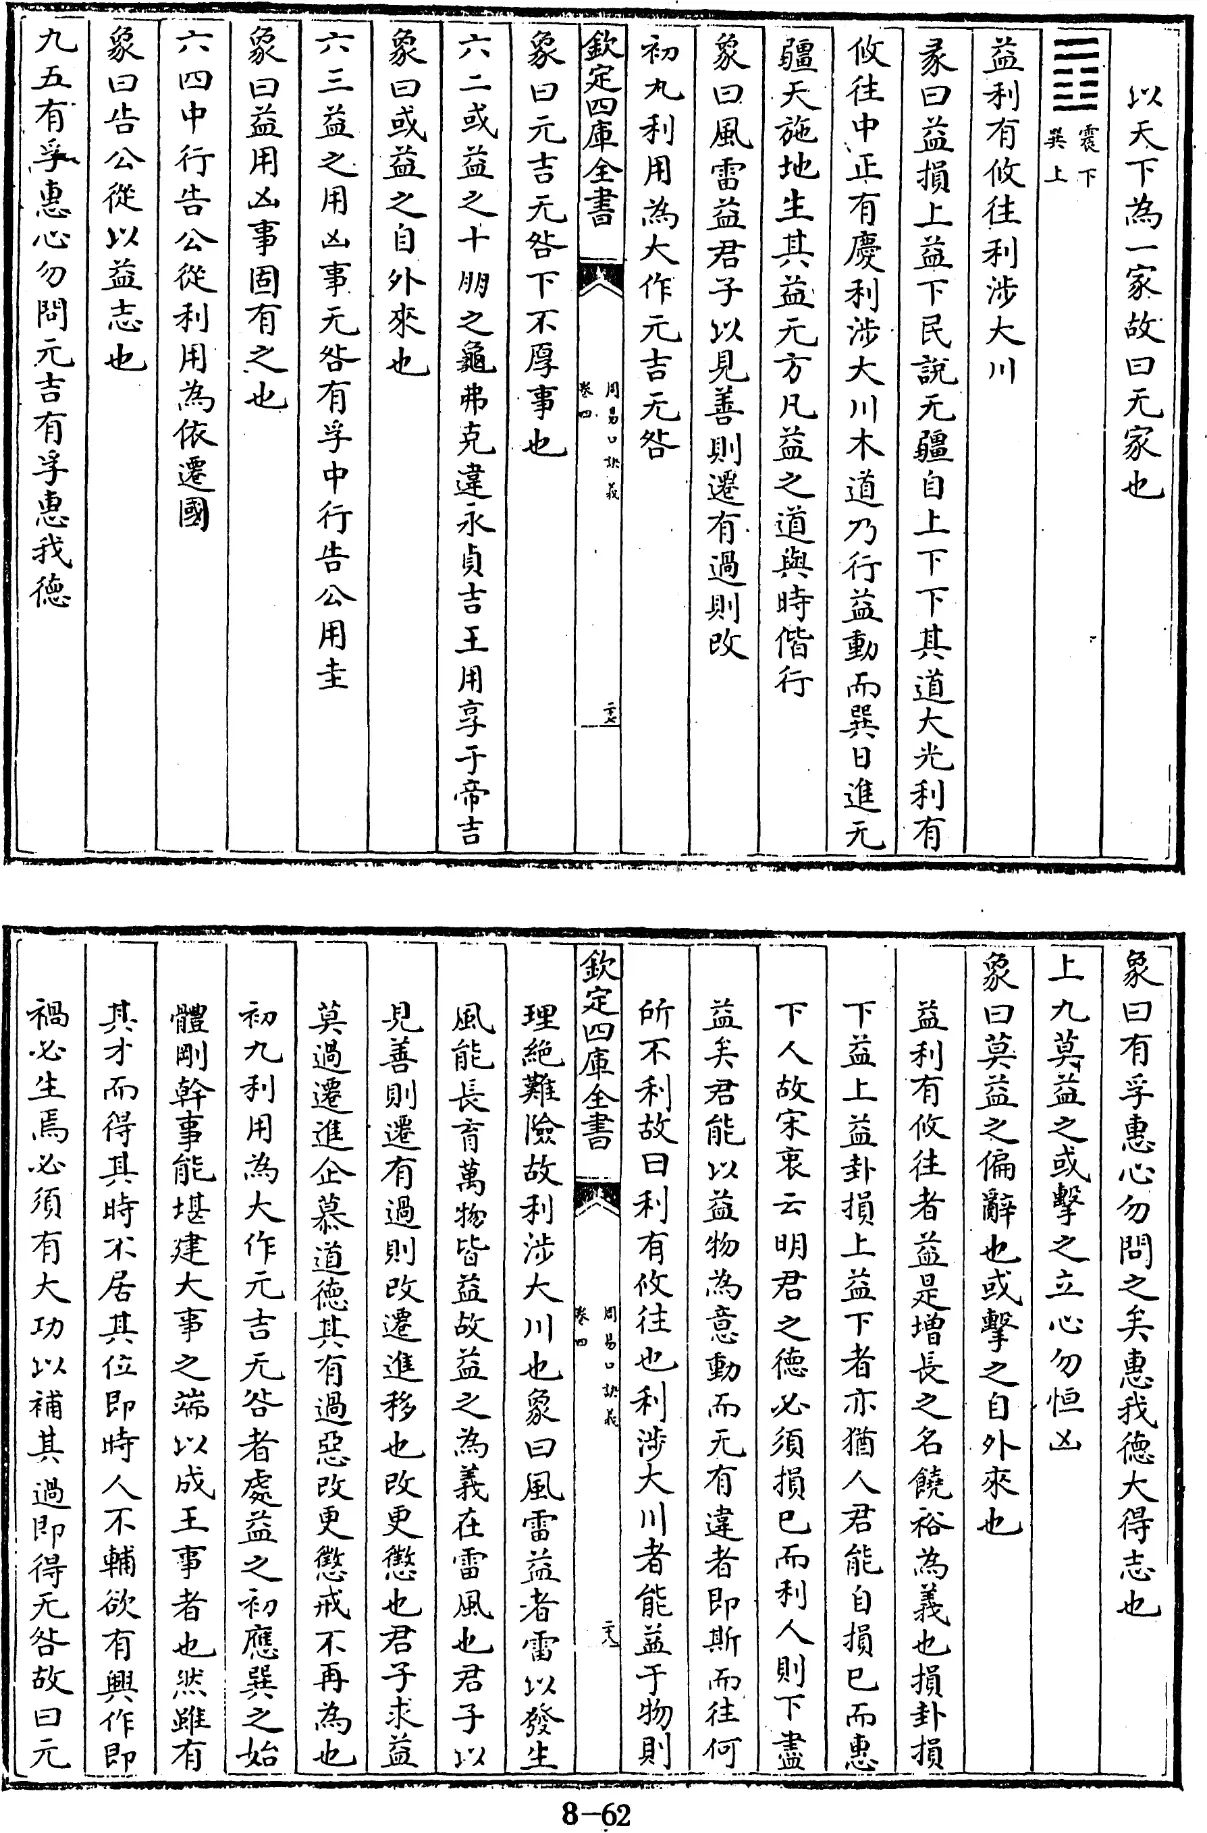 以天下為一家故曰无家也
震下
巽上
益利有攸往利涉大川
彖曰益損上益下民說无疆自上下下其道大光利有
攸往中正有慶利涉大川木道乃行益動而巽日進无
疆天施地生其益无方凡益之道與時偕行
象曰風雷益君子以見善則遷有過則改
初九利用為大作元吉无咎
欽定四庫全書
周易口訣義
卷四
二十七
象曰元吉无咎下不厚事也
六二或益之十朋之龜弗克違永貞吉王用享于帝吉
象曰或益之自外來也
六三益之用凶事无咎有孚中行告公用圭
象曰益用凶事固有之也
六四中行告公從利用為依遷國
象曰告公從以益志也
九五有孚惠心勿問元吉有孚惠我德
象曰有孚惠心勿問之矣惠我德大得志也
上九莫益之或擊之立心勿恒凶
象曰莫益之偏辭也或擊之自外來也
益利有攸往者益是增長之名饒裕為義也損卦損
下益上益卦損上益下者亦猶人君能自損已而惠
下人故宋衷云明君之德必須損已而利人則下盡
益矣君能以益物為意動而无有違者即斯而往何
所不利故曰利有攸往也利涉大川者能益于物則
欽定四庫全書
周易口訣義
卷四
二十八
理絶難險故利涉大川也象曰風雷益者雷以發生
風能長育萬物皆益故益之為義在雷風也君子以
見善則遷有過則改遷進移也改更懲也君子求益
莫過遷進企慕道德其有過惡改更懲戒不再為也
初九利用為大作元吉无咎者處益之初應巽之始
體剛幹事能堪建大事之端以成王事者也然雖有
其才而得其時不居其位即時人不輔欲有興作即
禍必生焉必須有大功以補其過即得无咎故曰元
8-62